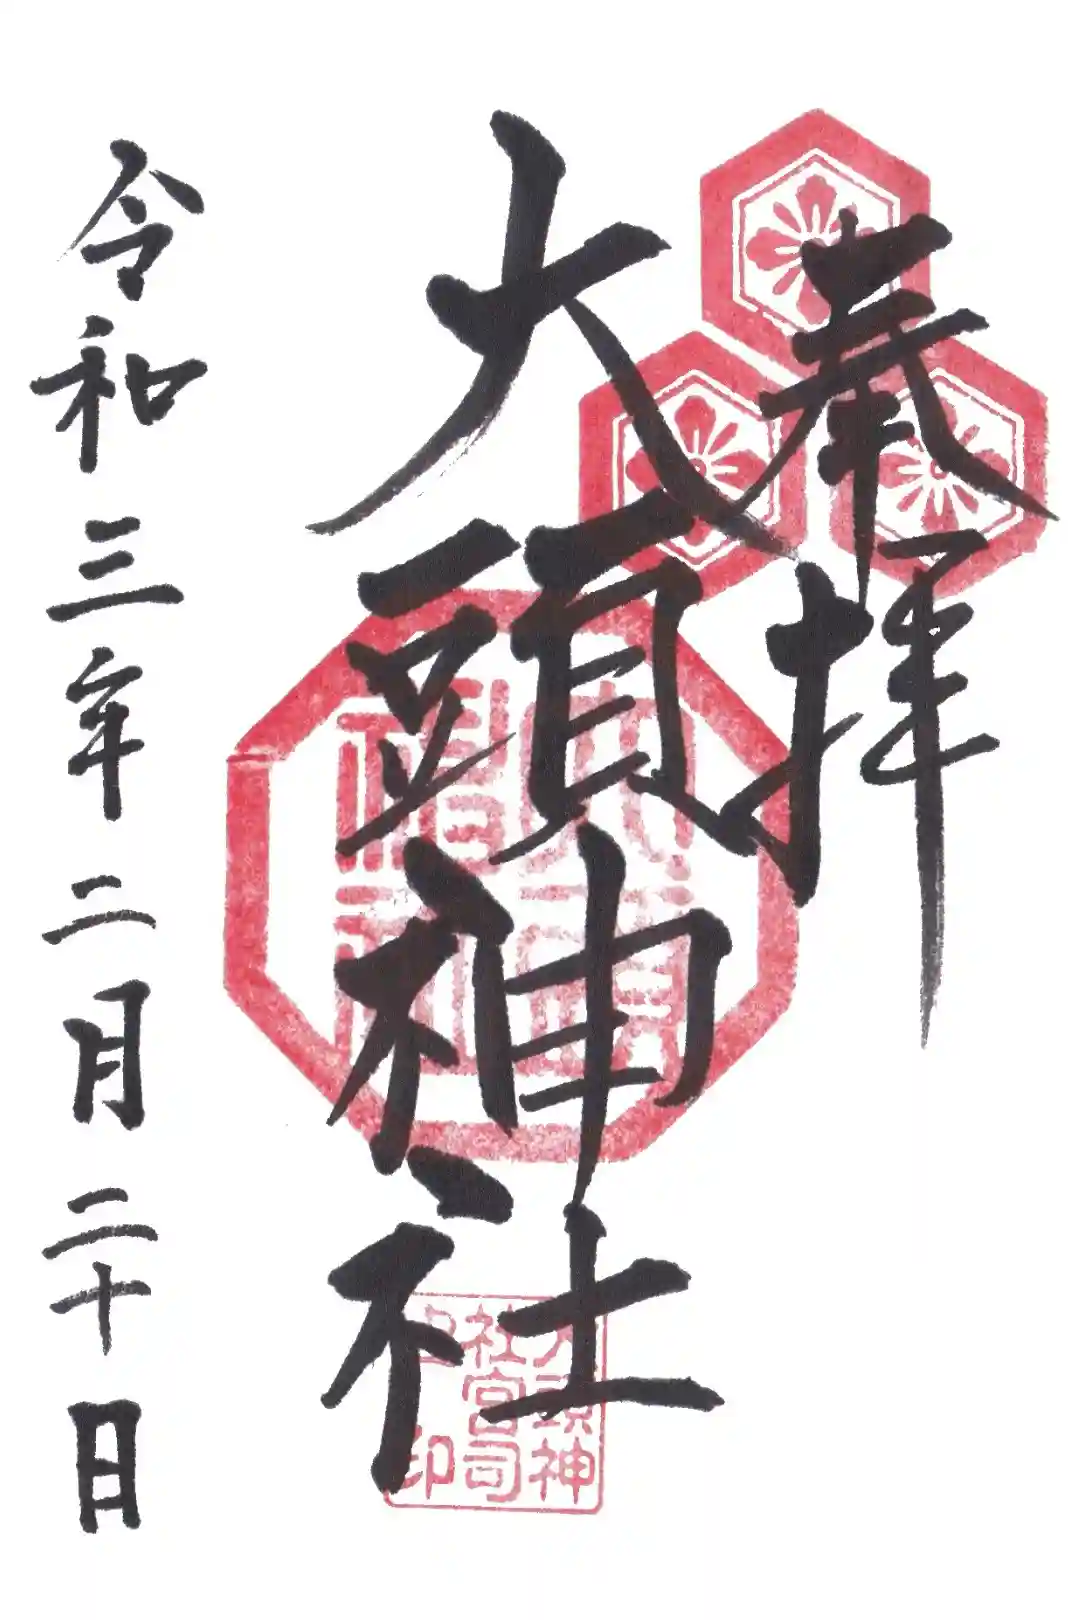 奉拝
大頭神社
令和三年二月二十日
大頭神
社宮司
之印